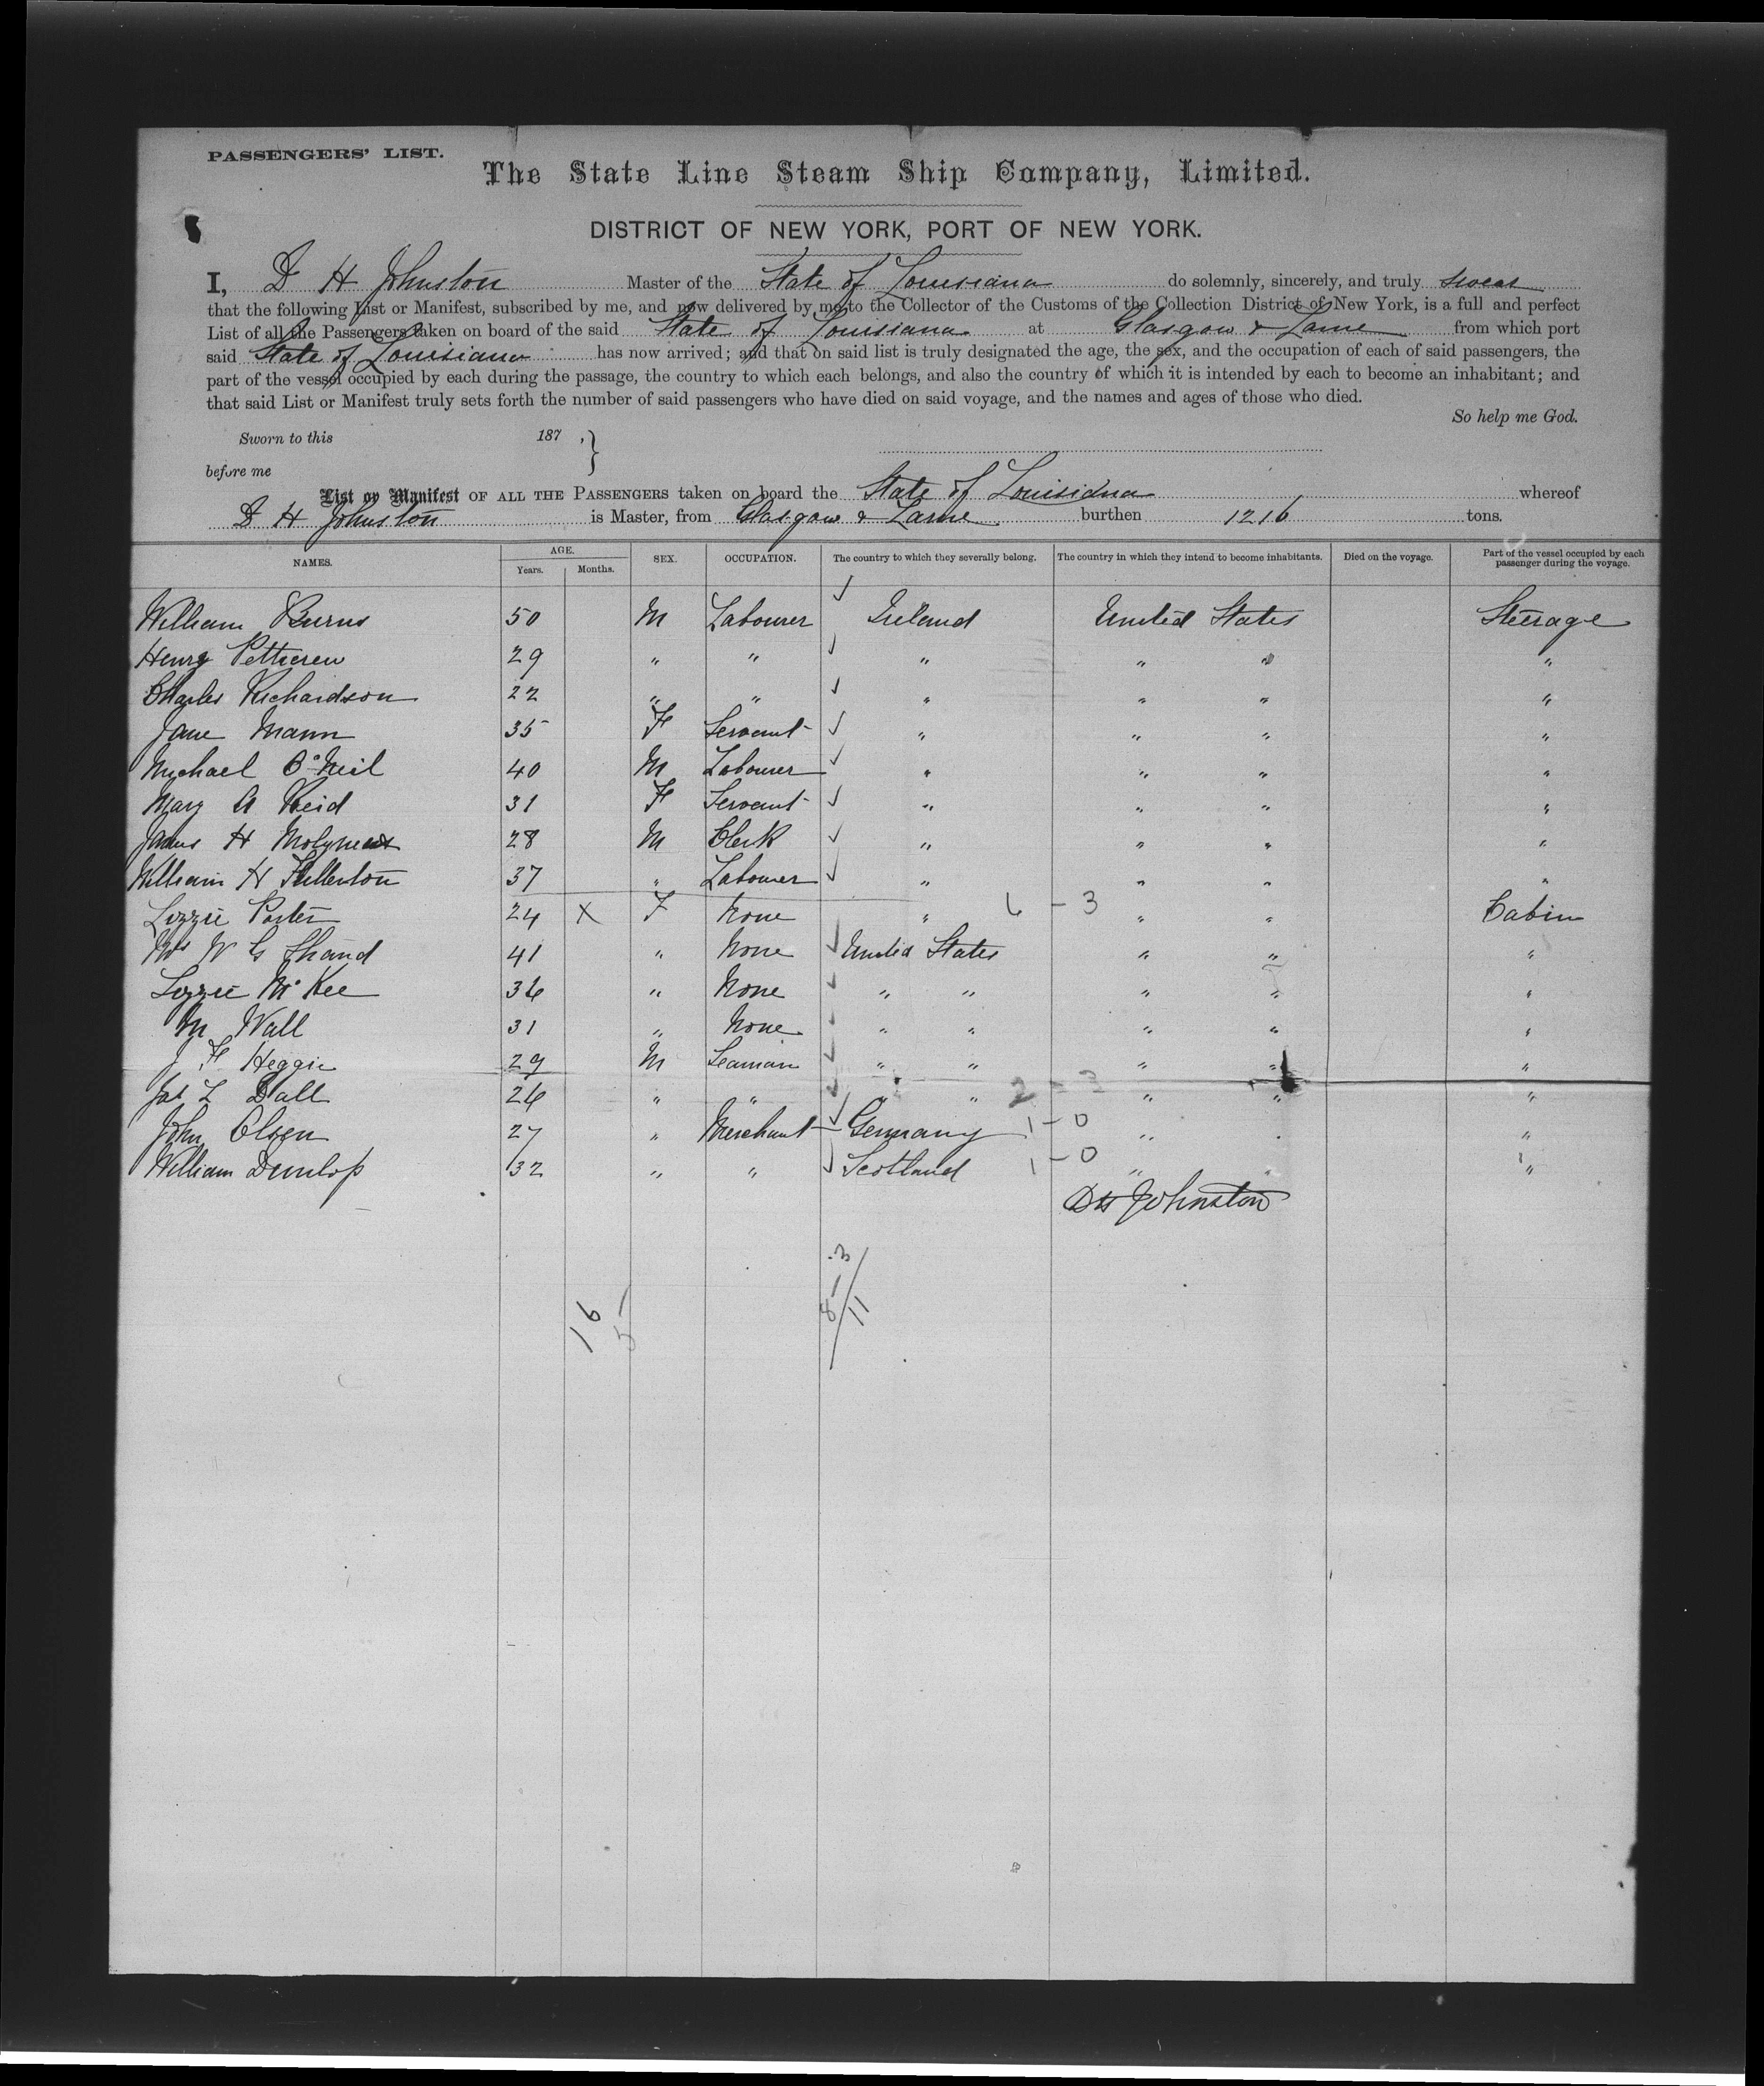 PASSENGERS' LIST.
The State Line Steam Ship Company, Limited.
DISTRICT OF NEW YORK, PORT OF NEW YORK.
I, D H Johnston Master of the State of Louisiana do solemnly, sincerely, and truly swear
that the following List or Manifest, subscribed by me, and now delivered by me to the Collector of the Customs of the Collection District of New York, is a full and perfect
List of all the Passengers taken on board of the said State of Louisiana at Glasgow & Larne from which port
said State of Louisiana has now arrived; and that on said list is truly designated the age, the sex, and the occupation of each of said passengers, the
part of the vessel occupied by each during the passage, the country to which each belongs, and also the country of which it is intended by each to become an inhabitant; and
that said List or Manifest truly sets forth the number of said passengers who have died on said voyage, and the names and ages of those who died.
So help me God.
Sworn to this 187 ,}
before me
List or Manifest OF ALL THE PASSENGERS taken on board the State of Louisiana whereof
D H Johnston is Master, from Glasgow & Larne burthen 1216 tons.
NAMES. AGE. Years. Months. SEX. OCCUPATION. The country to which they severally belong. The country in which they intend to become inhabitants. Died on the voyage. Part of the vessel occupied by each passenger during the voyage.
William Burns 50 M Labourer Ireland United States Steerage
Henry Petticrew 29 " " " " " "
Charles Richardson 22 " " " " " "
Jane Mann 35 F Servant " " " "
Michael O'Neil 40 M Labourer " " " "
Mary A Reid 31 F Servant " " " "
James H Molyneux 28 M Clerk " " " "
William H Fullerton 37 " Labourer " " " "
Lizzie Porter 24 X F None " 6 - 3 " " Cabin
Mrs W G Shand 41 " None United States " " "
Lizzie McKee 36 " None " " " " "
M Wall 31 " None " " " " "
J F Heggie 29 M Seaman " " " " "
Jas L Ball 26 " " " " 2 - 3 " " "
John Olsen 27 " Merchant Germany 1 - 0 " " "
William Dunlop 32 " " Scotland 1 - 0 " " "
DH Johnston
16
5
8 - 3
11